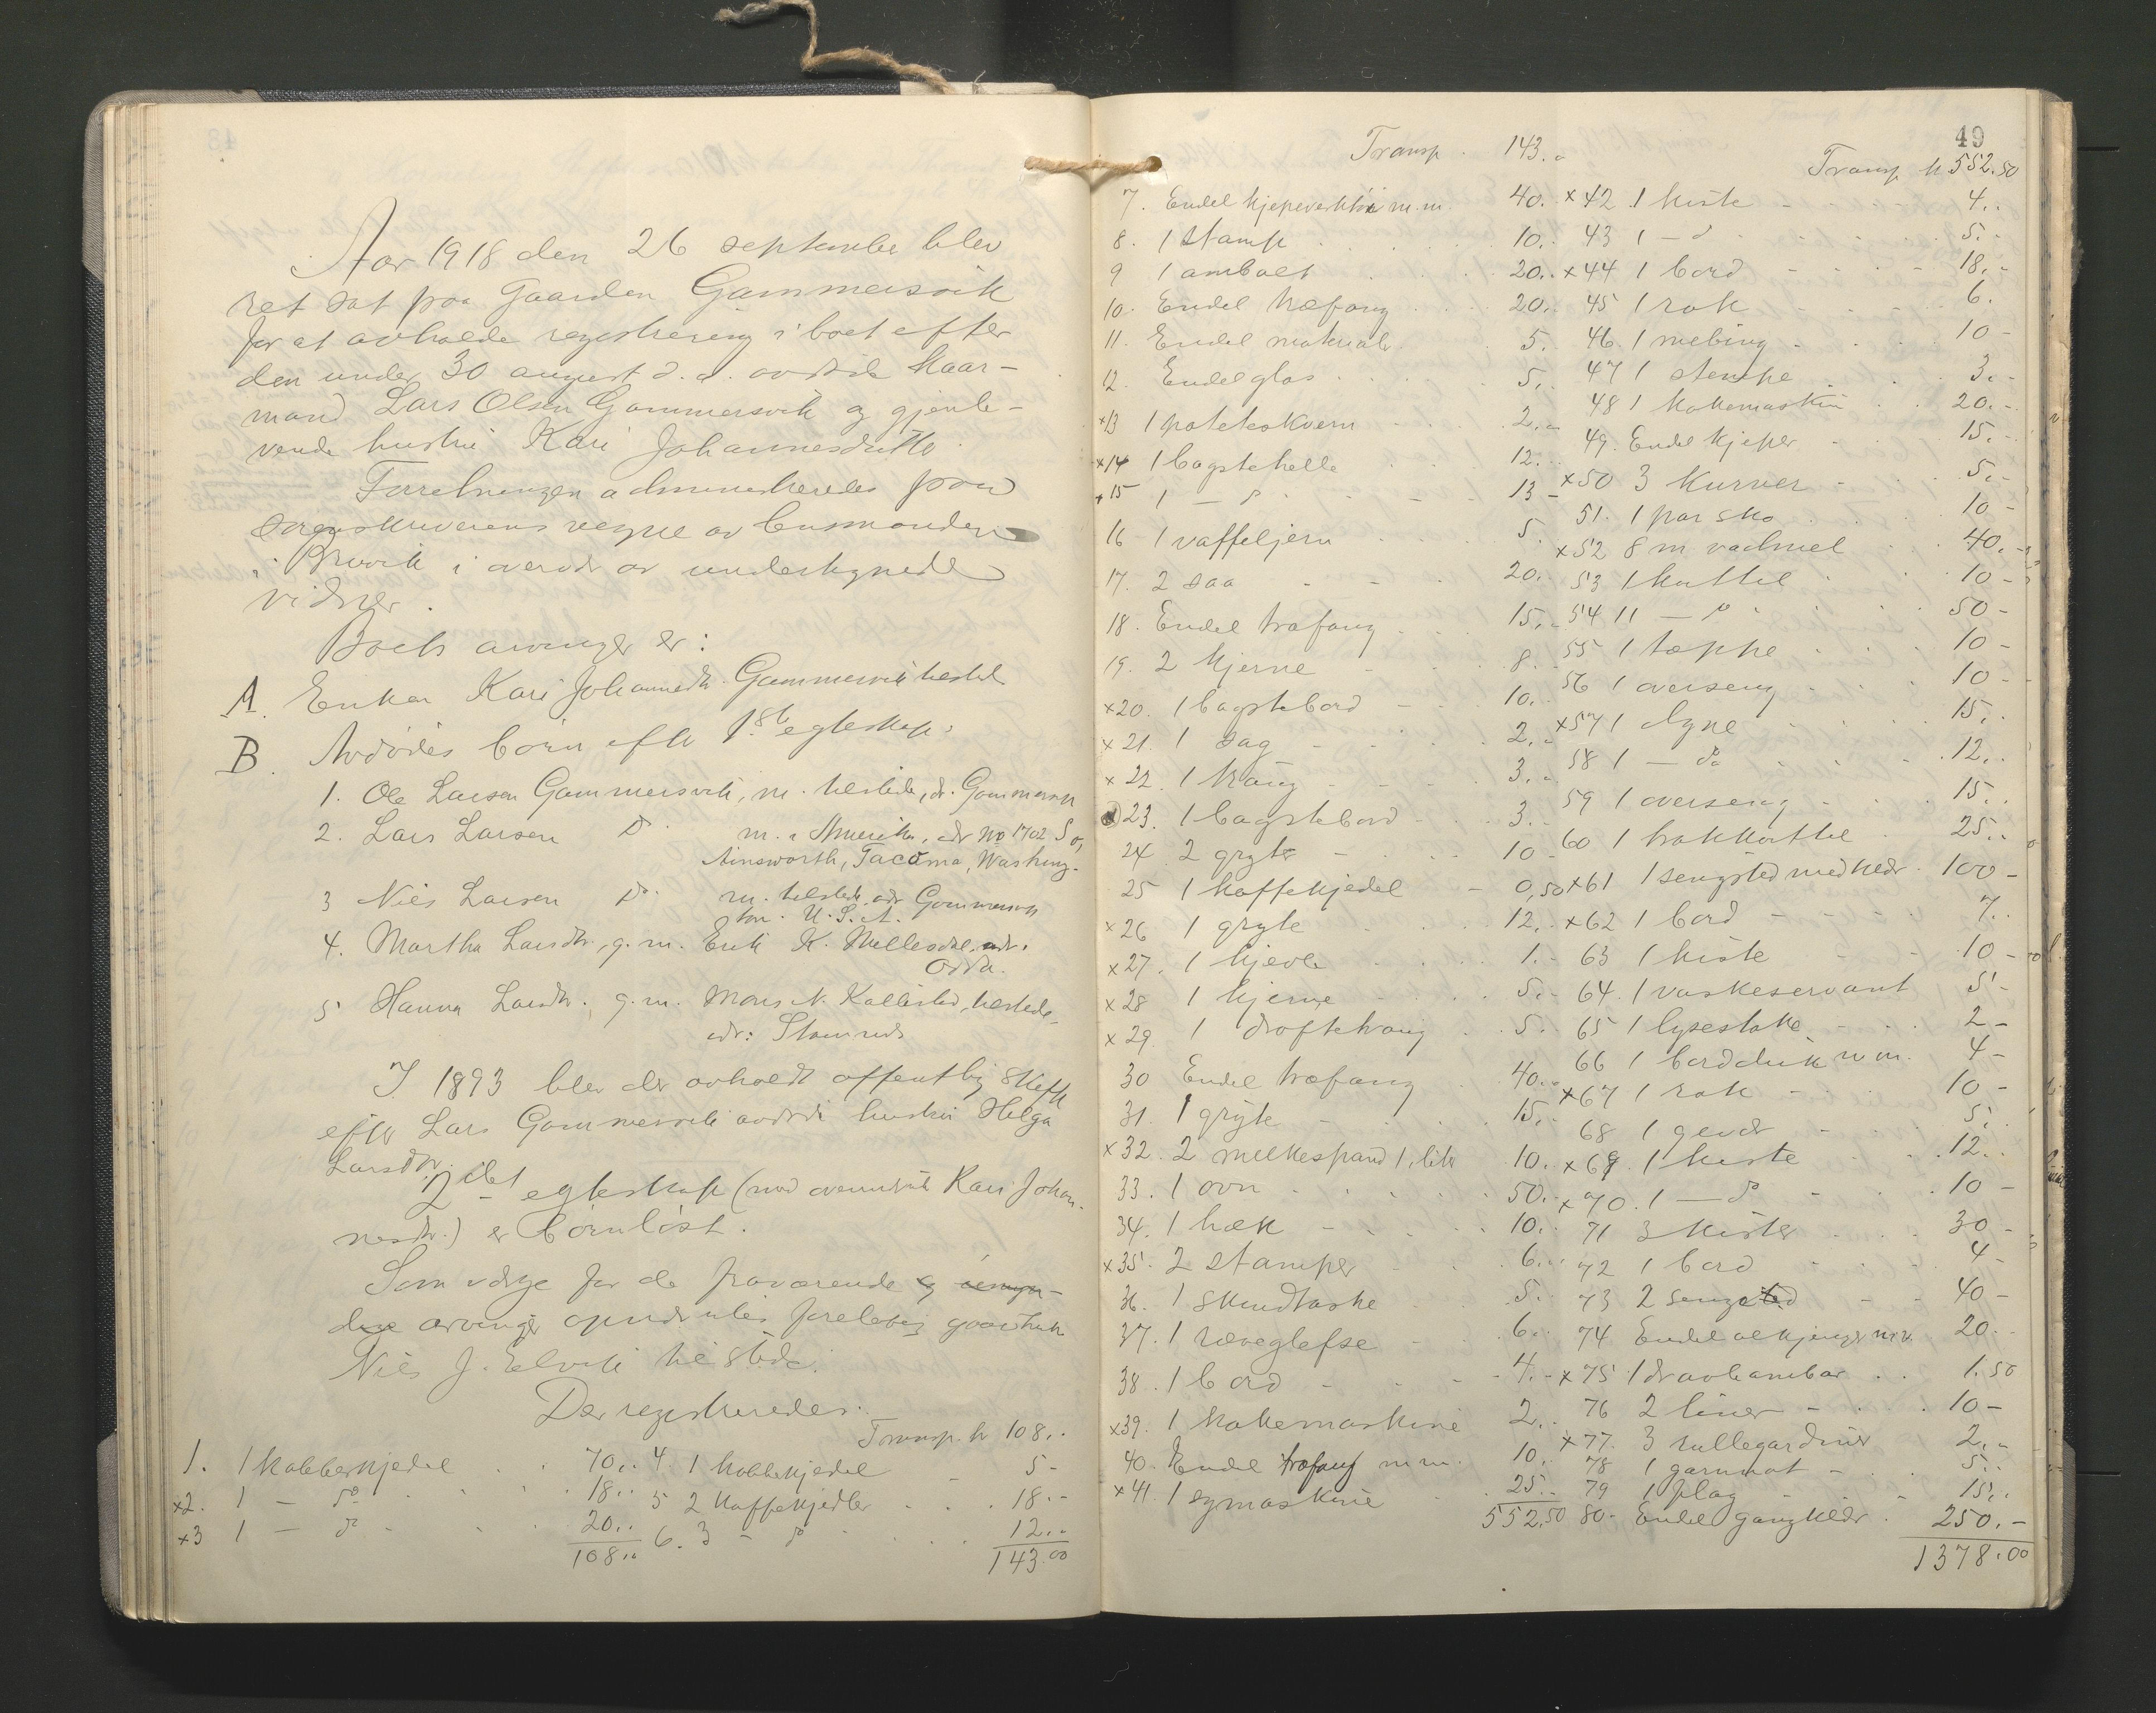 Aar 1918 den 26 september blev
ret sat paa Gaarden Gammersvik
for at avholde registrering i boet efter
den under 30 august d. a. avdøde kaar-
mand Lars Olsen Gammersvik og gjenle-
vende hustru Kari Johannesdatter.
Forretningen administreredes paa
sorenskriverens vegne av lensmanden
i Bruvik i overvær av undertegnede
vidner.
Boets arvinger er:
A. Enken Kari Johannesdtr. Gammersvik herstd
B. Avdødes børn efter 1ste egteskap:
1. Ole Larsen Gammersvik, m. herstede, adr. Gammersvik
2. Lars Larsen Do m. i Amerika, adr No 1702 So,
Ainsworth, Tacoma, Washing-
ton. U.S.A.
3 Nils Larsen Do. m. herstede adr Gammersvik
4. Martha Larsdtr., g. m. Erik K. adr.
Odda.
5 Hanna Larsdtr., g. m. Mons N. Kallestad, herstede,
adr: Stamnes
I 1893 blev der avholdt offentlig skifte
efter Lars Gammersvik avdøde hustru Helga
Larsdtr.
2det egteskap (med ovennævnte Kari Johan-
nesdtr.) er barnløst.
Som værge for de fraværende og umyn-
dige arvinger opnævntes foreløbig gaardbruker
Nils J. Elvik hersteds.
Der registreredes:
Transp. kr 108..
1. 1 kobberkjedel 70,. 4 1 kobbekjedel 5-
x2. 1 - do 18.. 5 2 kaffekjedler 18.-
x3 1 - do 20.. 6. 3 - do 12.-
108.. 143.00
49
Transp. 143.-
7. Endel kjøpeverktøi m.m. 40.
8. 1 stamp 10..
9 1 ambolt 20..
10. Endel træfang 20.
11. Endel materialer 5.
12. Endel glas 5.
x13 1 poteteskvern 2.-
x14 1 bagstehelle 12.
x15 1 - do 13-
16 1 vaffeljern 5.
17. 2 saa 20.
18. Endel træfang 15.
19. 2 kjerne 8.
x20. 1 bagstebord 10.
x21. 1 sag 2.-
x22. 1 traug 3.-
x23. 1 bagstebord 3.-
24 2 gryter 10-
25 1 kaffekjedel 0,50
x26 1 gryte 12.
x27. 1 kjevle 1.-
x28 1 kjerne 5.-
x29. 1 drøftetraug 5.
30 Endel træfang 40..
31. 1 gryte 15.
x32. 2 melkespand 1 liter 10.
33. 1 ovn 50.
34. 1 hæk 10.
x35. 2 stamper 6..
36. 1 skindtaske 5.
37. 1 ræveglefse 6..
38. 1 bord 4.-
x39. 1 kakemaskine 2..
40. Endel træfang m.m. 10.
x41. 1 symaskine 25.-
552.50
Transp kr 552.50
x42 1 kiste 4..
43 1 - do 5.-
x44 1 bord 18.-
45 1 rok 6.
46. 1 mebing 10-
47 1 stempe 3.-
48 1 kokemaskin 20.-
49. Endel kjeper 15.-
x50 3 kurver 5.-
51. 1 par sko 10-
x52 8 m vadmel 40.-
53 1 kuttel 10-
54 11 - do 50-
55 1 tæppe 10-
56 1 overseng 10-
x57 1 dyne 15..
58 1 - do 12..
59 1 overseng 15..
60 1 25..
x61 1 sengsted med klær 100-
x62 1 bord 7..
63 1 kiste 10-
64. 1 vaskeservant 5-
65 1 lysestake 2-
66 1 bordduk m m. 4-
x67 1 rok 10-
68 1 gevær 5.
x69. 1 kiste 12..
x70. 1 - do 10-
71 3 kister 30-
72 1 bord 4-
73 2 sengested 40-
74 Endel m.v. 20..
x75 1 dravhambar 1.50
76 2 liner 10-
x77. 3 rullegardiner 2.-
78 1 garnnot 5..
79 1 plag 15..
80. Endel gangklær 250.-
1378.00